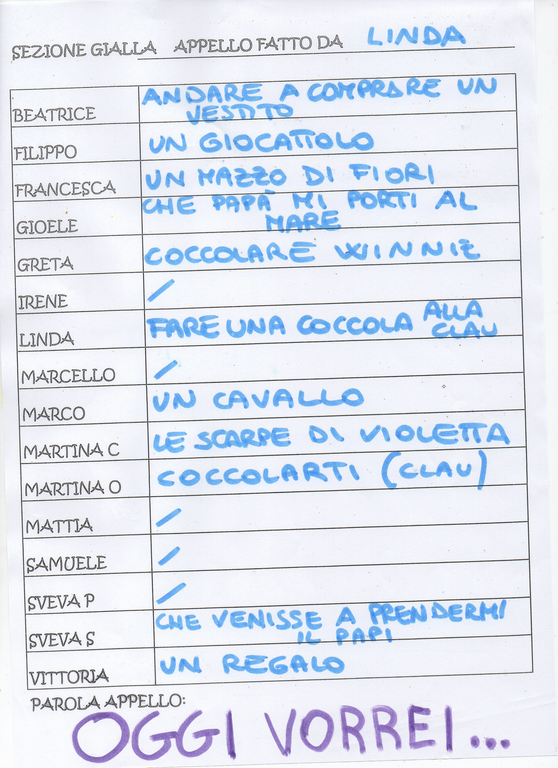 SEZIONE GIALLA APPELLO FATTO DA LINDA
BEATRICE ANDARE A COMPRARE UN
VESTITO
FILIPPO UN GIOCATTOLO
FRANCESCA UN MAZZO DI FIORI
GIOELE CHE PAPÀ MI PORTI AL
MARE
GRETA COCCOLARE WINNIE
IRENE /
LINDA FARE UNA COCCOLA ALLA
CLAU
MARCELLO /
MARCO UN CAVALLO
MARTINA C LE SCARPE DI VIOLETTA
MARTINA O COCCOLARTI (CLAU)
MATTIA /
SAMUELE /
SVEVA P /
SVEVA S CHE VENISSE A PRENDERMI
IL PAPI
VITTORIA UN REGALO
PAROLA APPELLO:
OGGI VORREI...